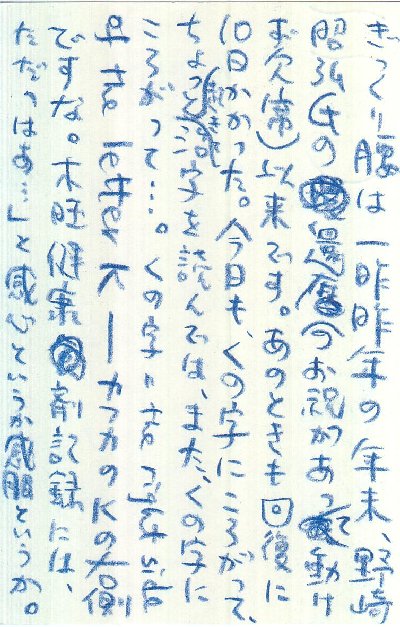 ぎっくり腰は一昨昨年の年末、野崎
昭弘氏の還暦(のお祝があって動け
ず欠席)以来です。あのときも回復に
10日かかった。今日も、くの字にころがって、
ちょっと活字を読んでは、また、くの字に
ころがって…。くの字
K―カフカのKの右側
ですな。木旺健康剤記録には、
ただ「はあ…」と感心というか感服というか。